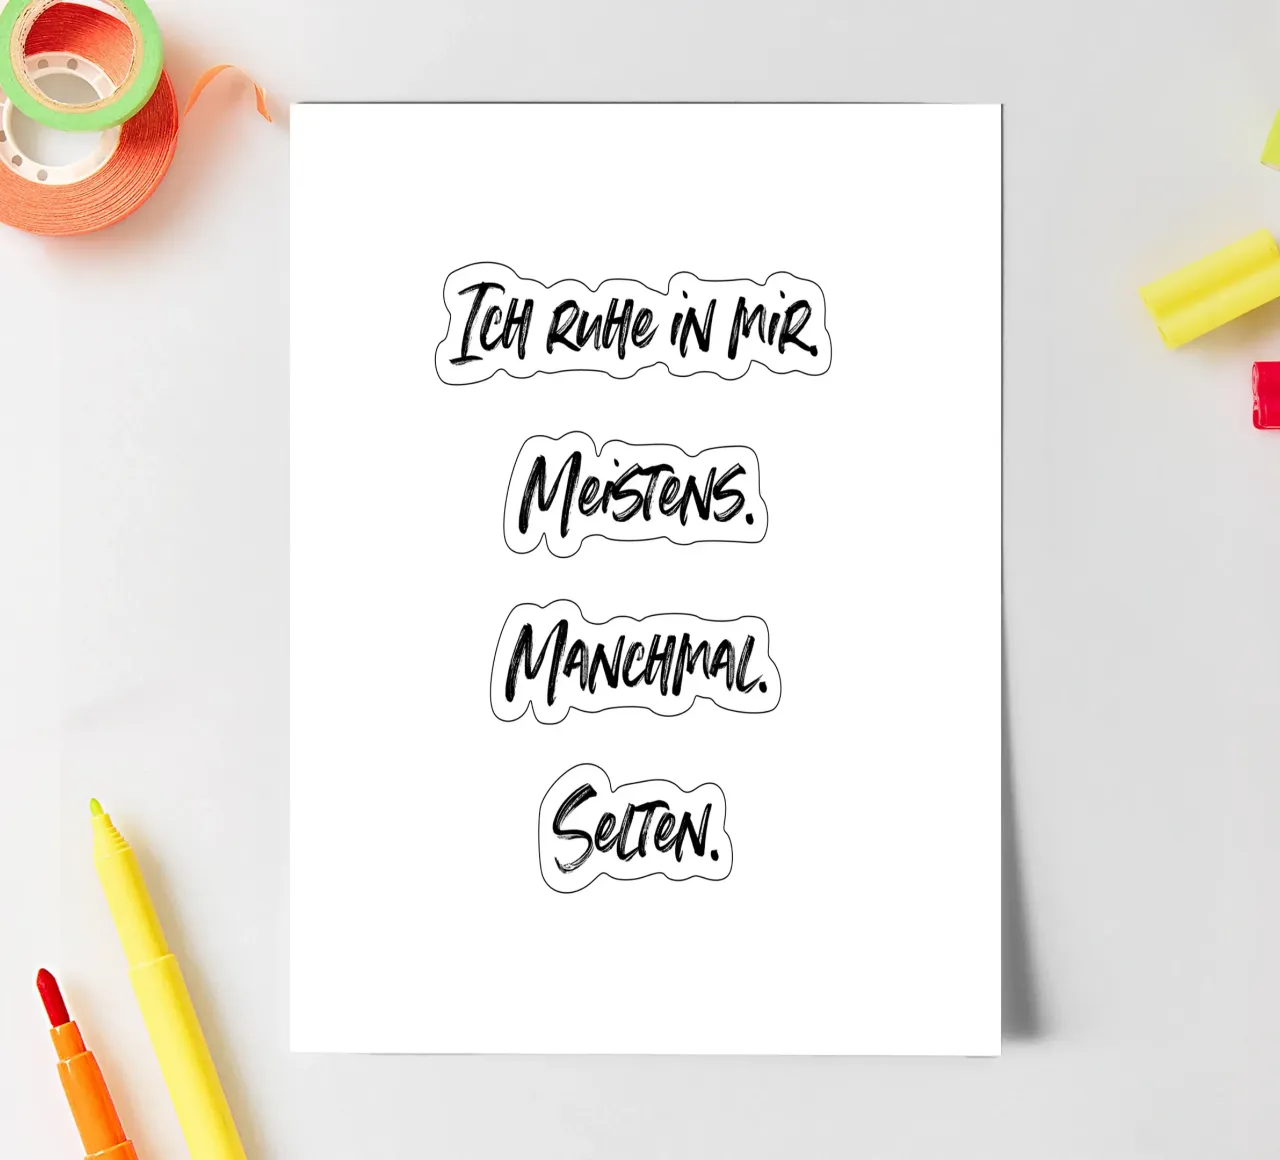 Ich ruhe in mir.
Meistens.
Manchmal.
Selten.